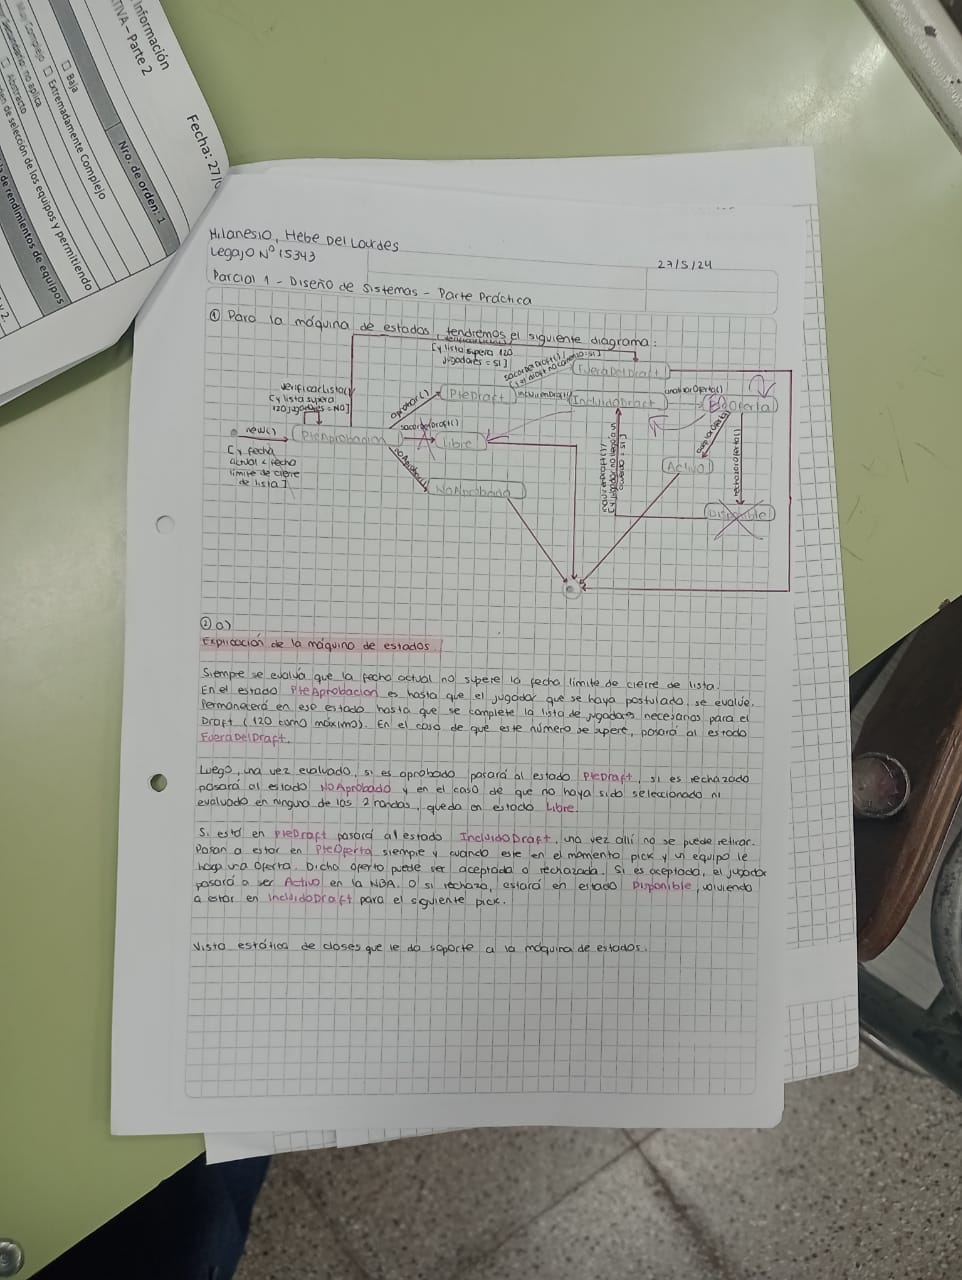 Información
TIVA – Parte 2
Fecha: 27/0
Nro. de orden: 1
Baja
Extremadamente Complejo
Abstracto
den de selección de los equipos y permitiendo
de rendimientos de equipos
Milanesio, Hebe Del Lourdes
Legajo N° 15343
27/5/24
Parcial 1 - Diseño de Sistemas - Parte Práctica
① Para la máquina de estados, tendremos el siguiente diagrama:
[y lista supera 120
jugadores = SI]
FueraDelDraft
verificarLista()
[y lista supera
120 jugadores = NO]
aprobar()
PreDraft
IncluidoDraft
new()
PreAprobacion
Libre
[y fecha
actual < fecha
límite de cierre
de lista]
noAprobar()
NoAprobado
Activo
rechazarOferta()
Disponible
② a)
Explicación de la máquina de estados
Siempre se evalúa que la fecha actual no supere la fecha límite de cierre de lista.
En el estado PreAprobacion es hasta que el jugador que se haya postulado, se evalúe.
Permanecerá en ese estado hasta que se complete la lista de jugadores necesarios para el
Draft (120 como máximo). En el caso de que este número se supere, pasará al estado
FueraDelDraft.
Luego, una vez evaluado, si es aprobado pasará al estado PreDraft, si es rechazado
pasará al estado NoAprobado y en el caso de que no haya sido seleccionado ni
evaluado en ninguna de las 2 rondas, queda en estado Libre.
Si está en PreDraft pasará al estado IncluidoDraft, una vez allí no se puede retirar.
Pasan a estar en PreOferta siempre y cuando esté en el momento pick y un equipo le
haga una oferta. Dicha oferta puede ser aceptada o rechazada. Si es aceptada, el jugador
pasará a ser Activo en la NBA. O si rechaza, estará en estado Disponible, volviendo
a estar en IncluidoDraft para el siguiente pick.
Vista estática de clases que le da soporte a la máquina de estados.